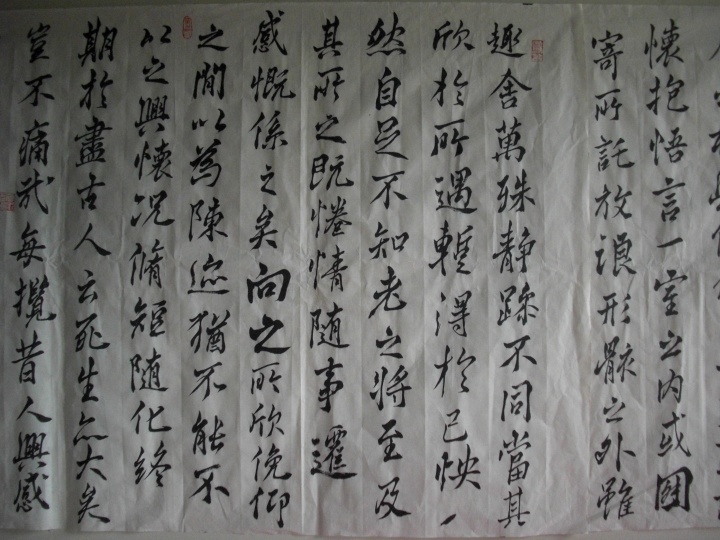 懷抱悟言一室之内或因
寄所託放浪形骸之外雖
趣舍萬殊静躁不同當其
欣於所遇暫得於己怏
然自足不知老之將至及
其所之既惓情隨事遷
感慨係之矣向之所欣俛仰
之間以為陳迹猶不能不
以之興懷況脩短隨化終
期於盡古人云死生亦大矣
豈不痛哉每攬昔人興感